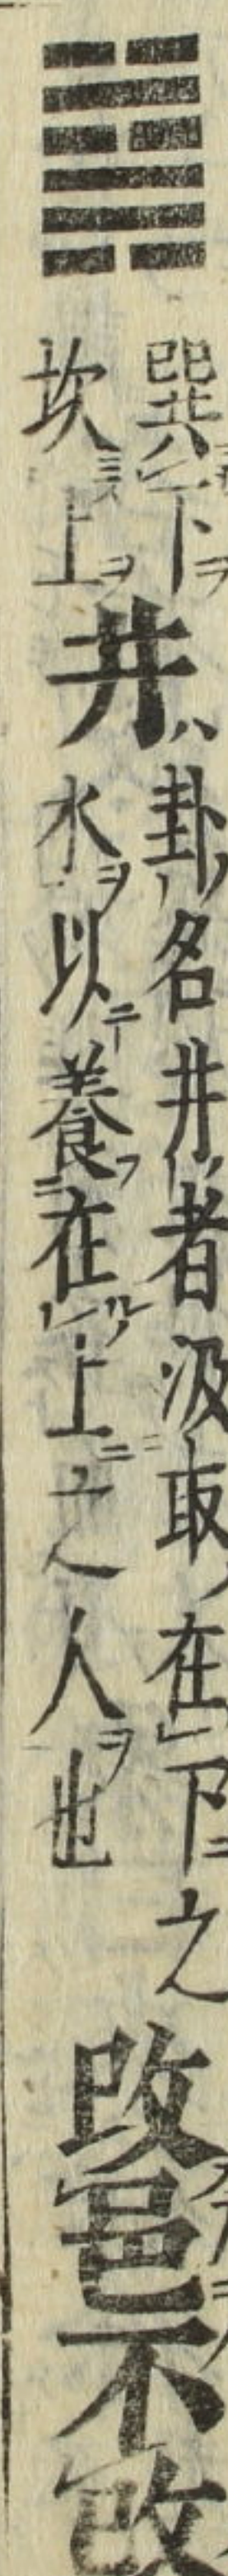 ䷯
巽下
坎上
井
卦名井者汲取在下之
水以養在上之人也
改邑不改